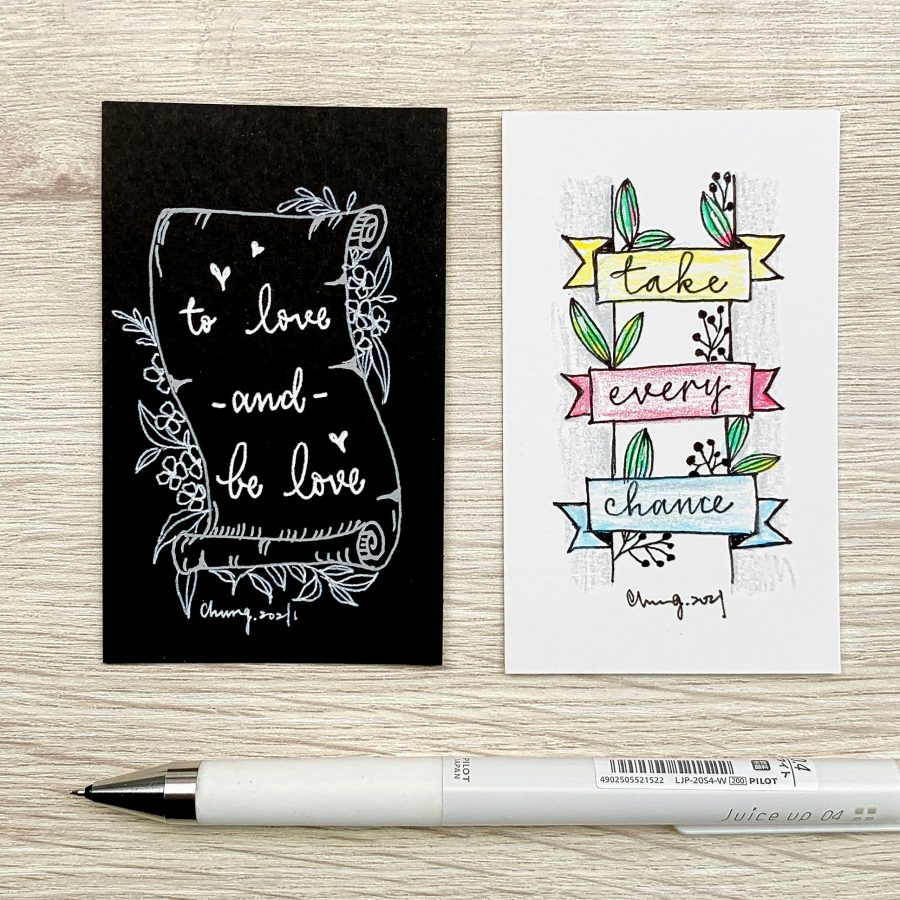 to love
-and-
be love
Chung.2021
take
every
chance
Chung.2021
PILOT
JAPAN
4902505521522
LJP-20S4-W 200 PILOT
Juice up 04